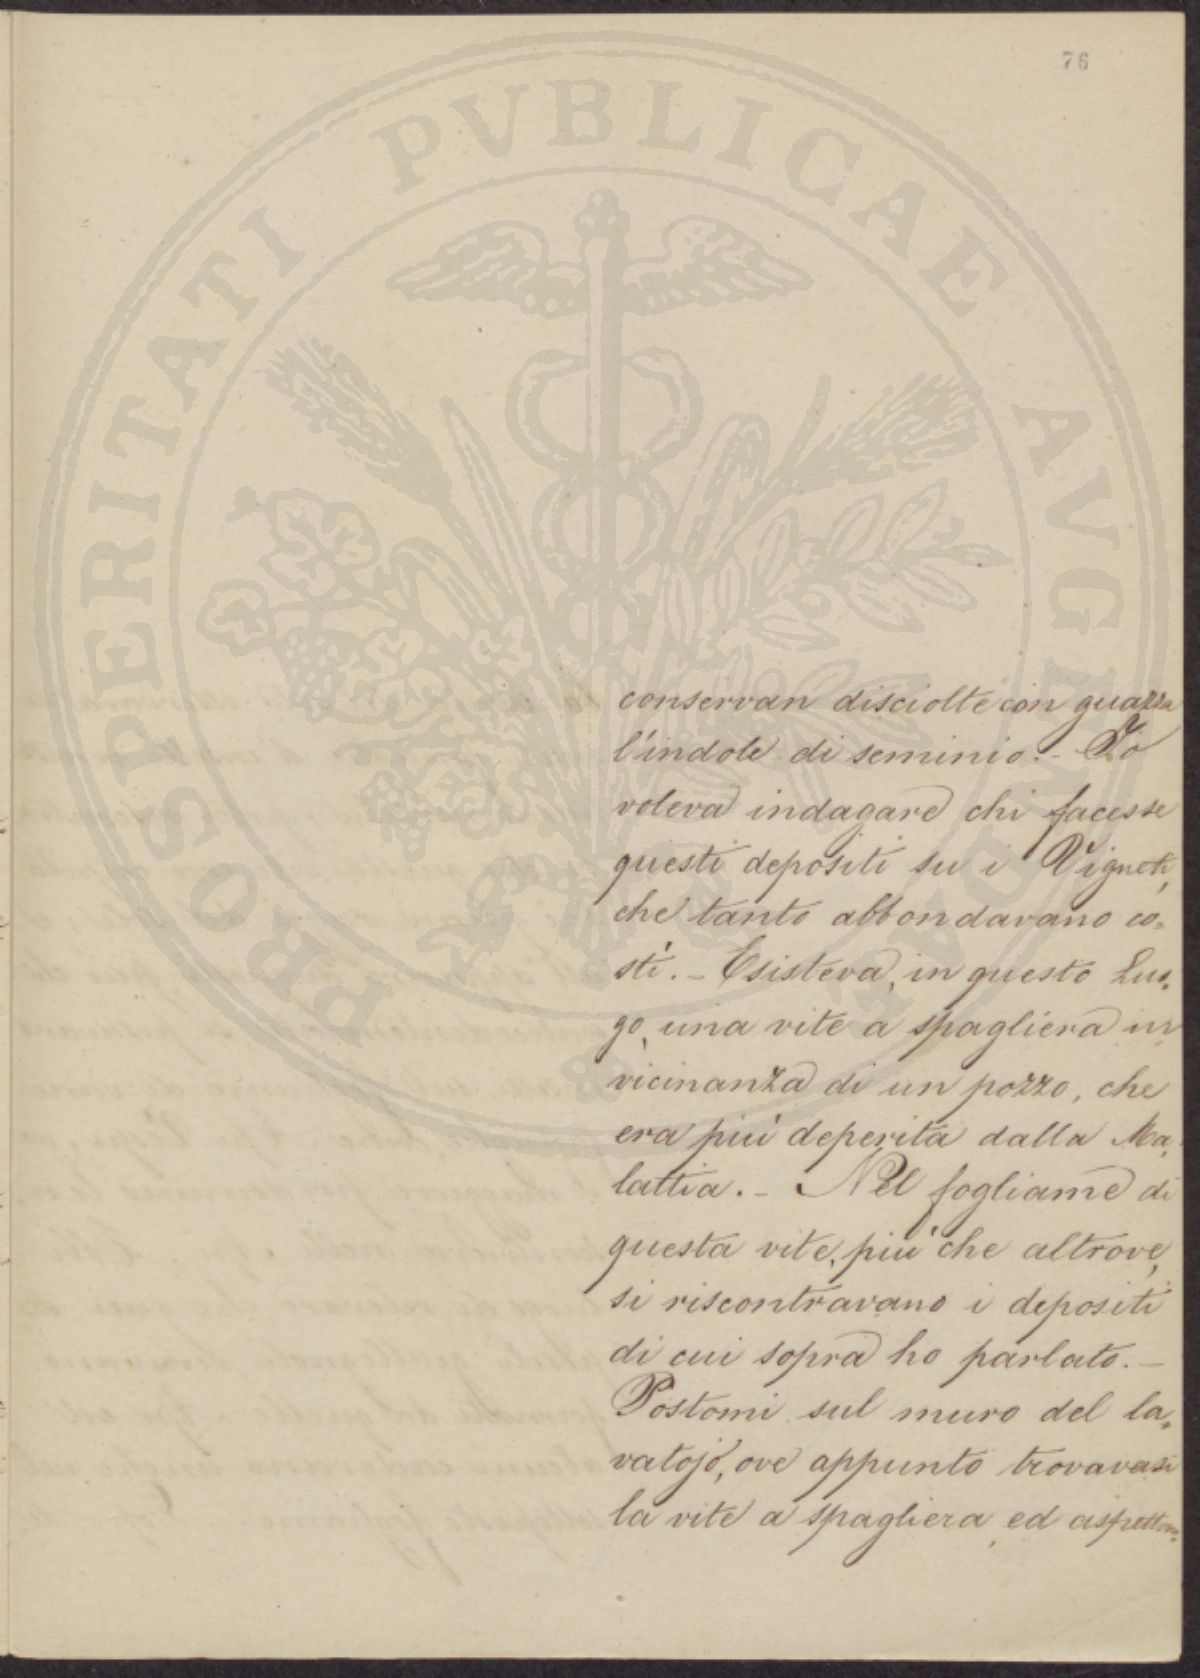 76
PROSPERITATI PVBLICAE AVGENDAE
conservan disciolte con guazza
l'indole di seminio. - Io
voleva indagare chi facesse
questi depositi su i Vigneti,
che tanto abbondavano co=
sti. - Esisteva, in questo Luo=
go, una vite a spagliera in
vicinanza di un pozzo, che
era più deperita dalla Ma=
lattia. - Nel fogliame di
questa vite, più che altrove,
si riscontravano i depositi
di cui sopra ho parlato. -
Postomi sul muro del la=
vatojo, ove appunto trovavasi
la vite a spagliera, ed aspetton=